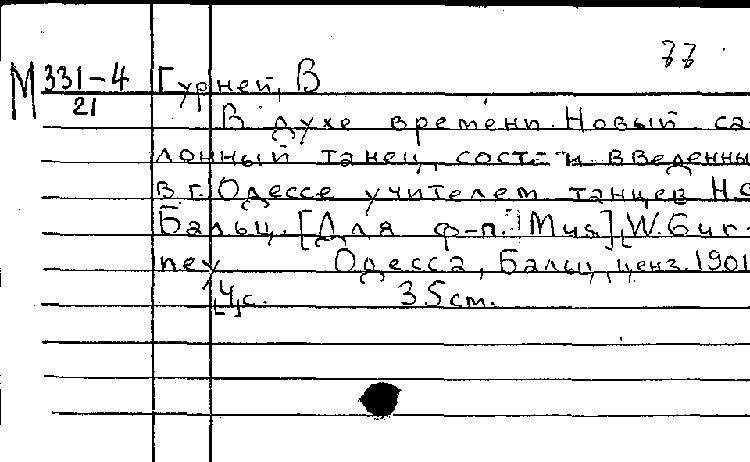 77
М 331-4 Гурней, В
21
В духе времени. Новый са-
лонный танец, сост. и введенны
в г. Одессе учителем танцев Н.С
Бальц. [Для ф-п. Муз.] W. Gur-
ney Одесса, Бальц, ценз. 1901
[4] с. 35 cm.